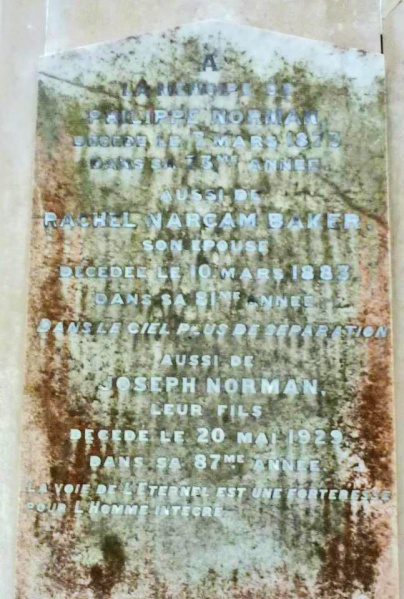 A
LA MEMOIRE DE
PHILIPPE NORMAN,
DECEDE LE 7 MARS 1873
DANS SA 73ME ANNEE.
AUSSI DE
RACHEL NARGAM BAKER,
SON EPOUSE
DECEDEE LE 10 MARS 1883
DANS SA 81ME ANNEE.
DANS LE CIEL PLUS DE SEPARATION
AUSSI DE
JOSEPH NORMAN,
LEUR FILS
DECEDE LE 20 MAI 1929
DANS SA 87ME ANNEE.
LA VOIE DE L'ETERNEL EST UNE FORTERESSE
POUR L'HOMME INTEGRE